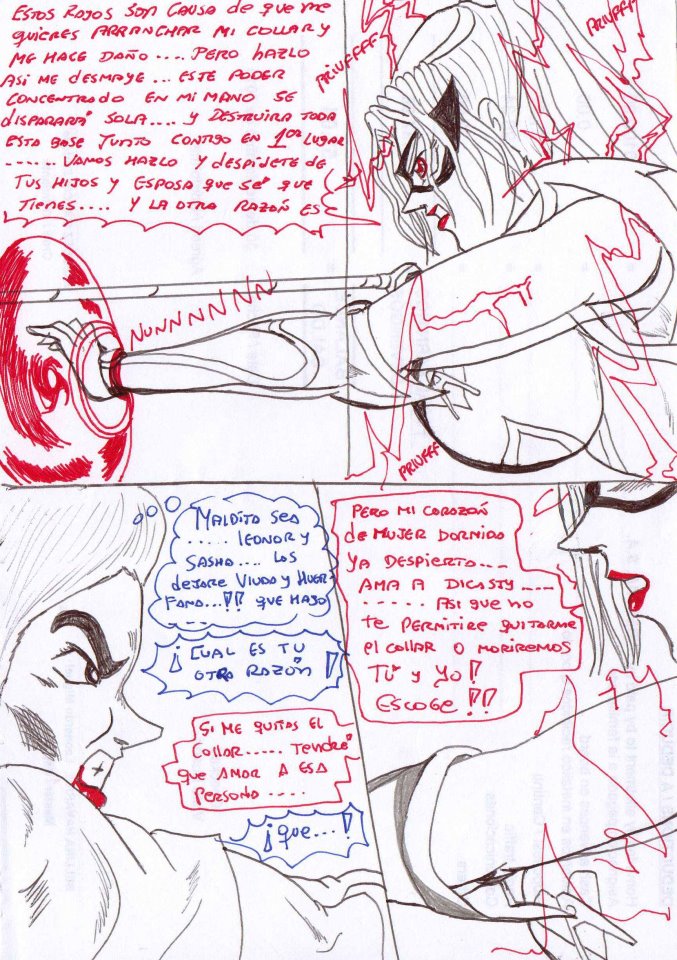 ESTOS RAYOS SON CAUSA de que me
quieres ARRANCHAR MI COLLAR y
ME HACE DAÑO .... PERO HAZLO
ASI ME DESMAYE ... ESTE PODER
CONCENTRADO EN MI MANO SE
DISPARARÁ SOLA .... y DESTRUIRA TODA
ESTA BASE JUNTO CONTIGO EN 1ER LUGAR
...... VAMOS HAZLO Y DESPÍDETE DE
TUS HIJOS Y ESPOSA QUE SÉ QUE
TIENES .... Y LA OTRA RAZÓN ES
PRIUFFFF
PRIUFFF
NUNNNNNNN
PRIUFFF
MALDITA SEA
..... LEONOR Y
SASHA .... LOS
dejARE VIUDA Y HUER-
FANA...!! QUE HAGO
.....
¡CUAL ES TU
OTRA RAZÓN!
SI ME QUITAS EL
COLLAR ..... TENDRÉ
QUE AMAR A ESA
PERSONA .....
¡QUE...!
PERO MI CORAZÓN
de MUJER DORMIDO
YA DESPIERTO ....
AMA A DICASTY ....
...... ASI QUE NO
te PERMITIRE QUITARME
el COLLAR O MORIREMOS
TÚ y YO!
ESCOGE!!